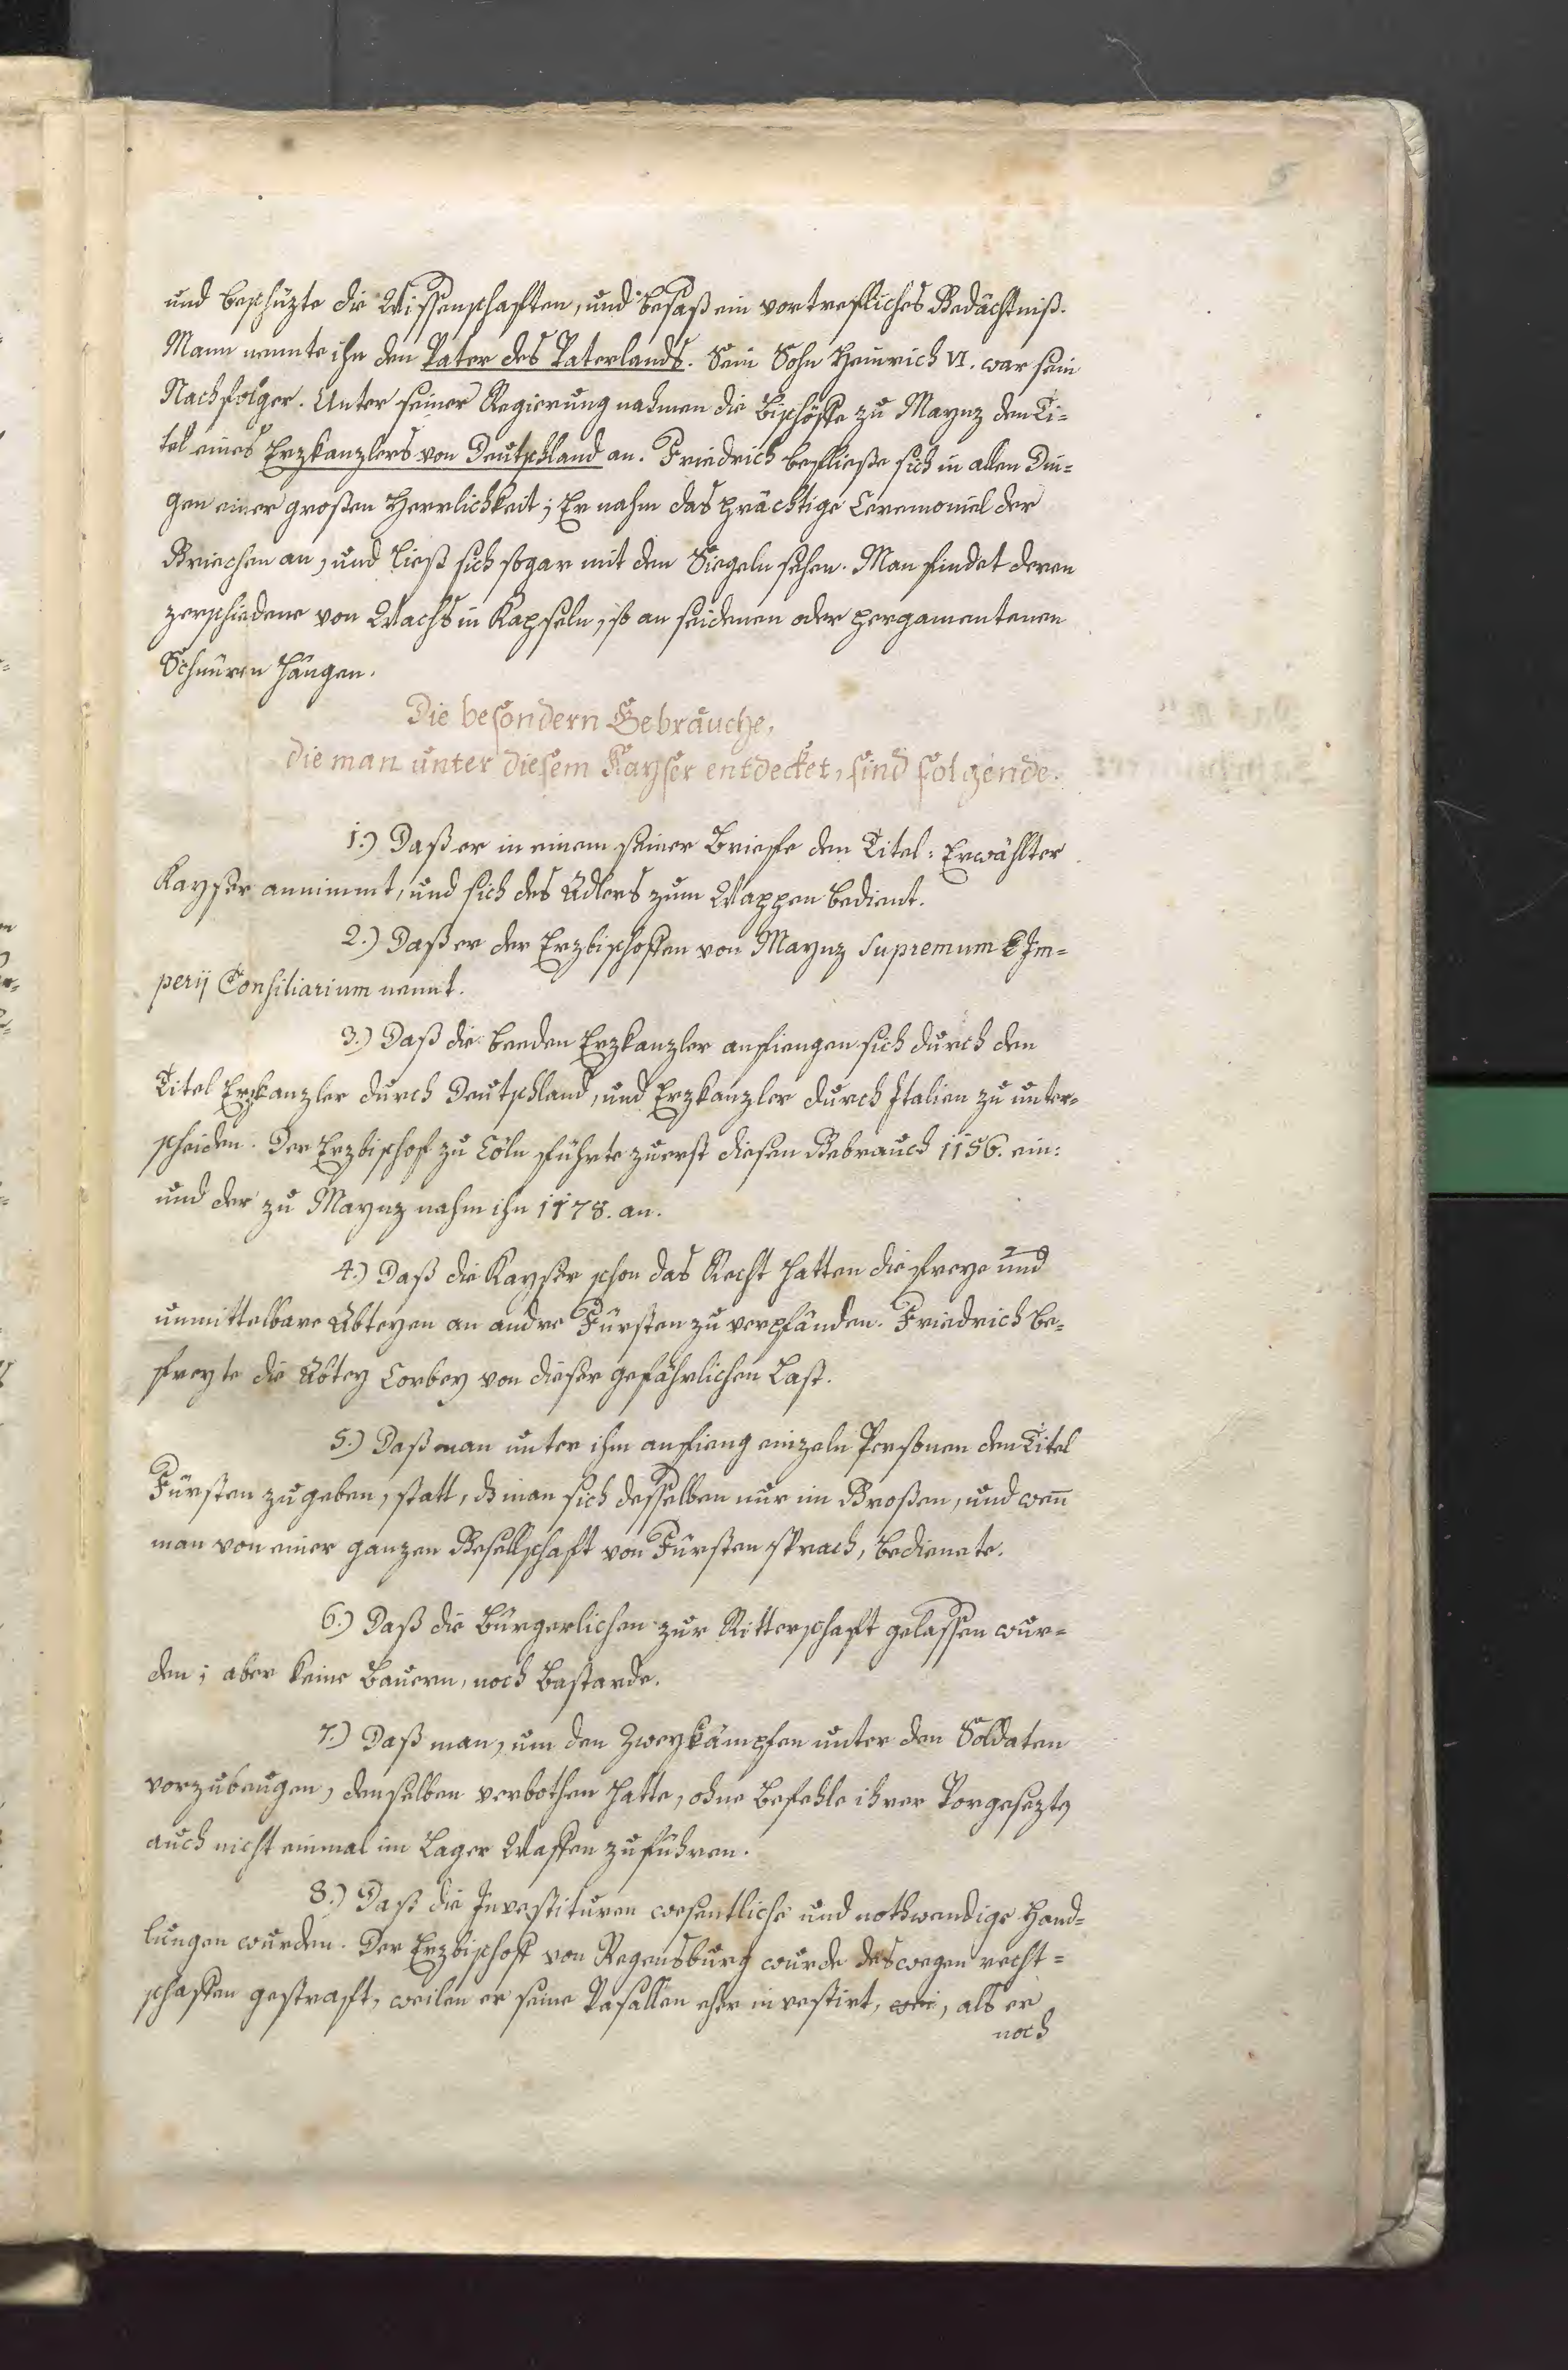 5
und beschüzte die Wissenschafften, und besaß ein vortrefliches Gedächtniß.
Mann nennte ihn den Vater des Vaterlands. Sein Sohn Heinrich VI. war sein
Nachfolger. Unter seiner Regierung nahmen die Bischöffe zu Maynz den Ti=
tel eines Erzkanzlers von Deutschland an. Friedrich befließe sich in allen Din=
gen einer großen Herrlichkeit; Er nahm das prächtige Ceremoniel der
Griechen an, und ließ sich sogar mit den Siegeln sehen. Man findet deren
zerschiedene von Wachs in Kapseln, so an seidenen oder pergamentenen
Schnüren hängen.
Die besondern Gebräuche,
die man unter diesem Kayser entdecket, sind folgende.
1.) Daß er in einem seiner Brieffe den Titel: Erwählter
Kayser annimmt, und sich des Adlers zum Wappen bedient.
2.) Daß er der Erzbischoffen von Maynz Supremum Im=
perij Consiliarium nennt.
3.) Daß die beeden Erzkanzler anfiengen sich durch den
Titel Erzkanzler durch Deutschland, und Erzkanzler durch Italien zu unter=
scheiden. Der Erzbischof zu Cöln führte zuerst diesen Gebrauch 1156. ein:
und der zu Maynz nahm ihn 1178. an.
4.) Daß die Kayser schon das Recht hatten die freye und
unmittelbare Abteyen an andre Fürsten zu verpfänden. Friedrich be=
freyte die Abtey Corbey von dieser gefährlichen Last.
5.) Daß man unter ihm anfieng einzeln Personen den Titel
Fürsten zu geben, statt, dß man sich desselben nur im Großen, und wen̄
man von einer ganzen Gesellschaft von Fürsten sprach, bedienete.
6.) Daß die Bürgerlichen zur Ritterschaft gelassen wur=
den; aber keine Bauern, noch Bastarde.
7.) Daß man, um den Zweykämpfen unter den Soldaten
vorzubeugen, denselben verbothen hatte, ohne Befehle ihrer Vorgesezten
auch nicht einmal im Lager Waffen zu führen.
8.) Daß die Investituren wesentliche und nothwendige Hand=
lungen wurden. Der Erzbischoff von Regensburg wurde deswegen recht=
schaffen gestraft, weilen er seine Vasallen eher investirt, wei, als er
noch